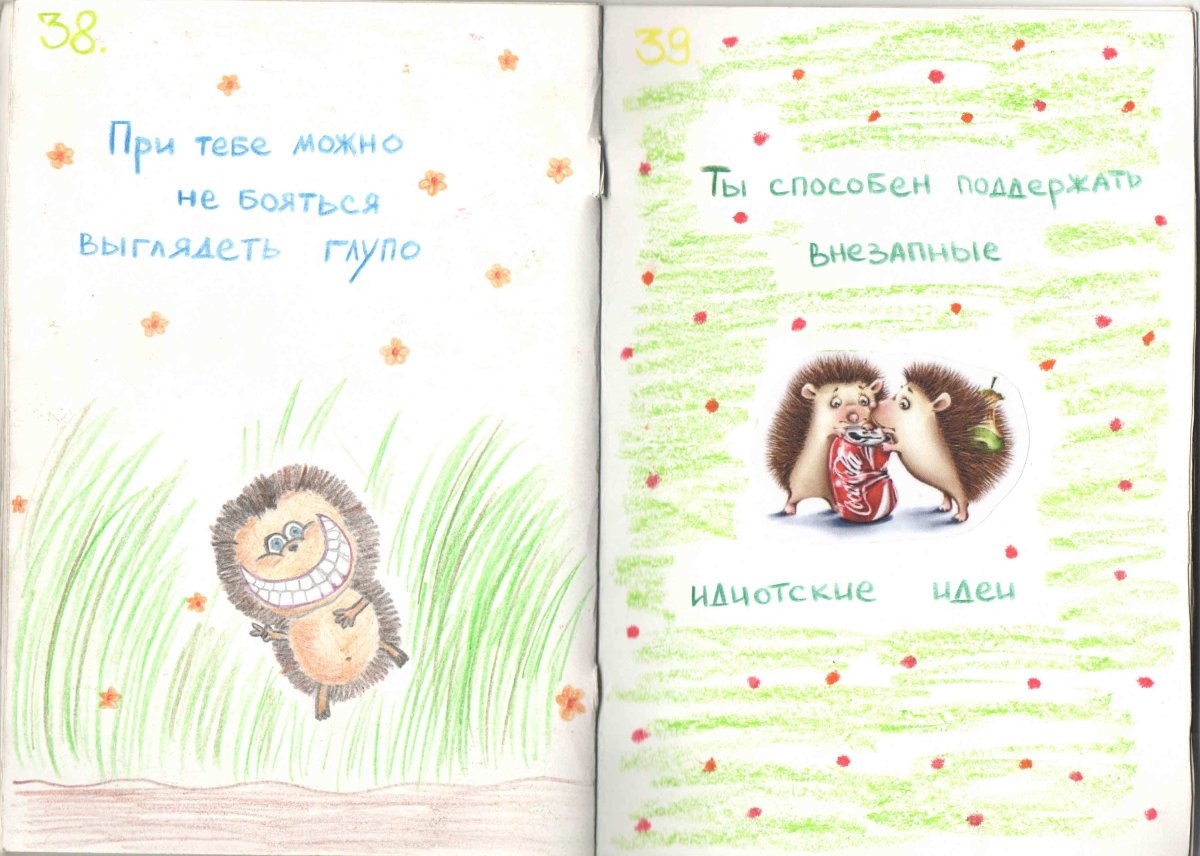 38.
При тебе можно
не бояться
выглядеть глупо
39.
Ты способен поддержать
внезапные
Coca-Cola
идиотские идеи